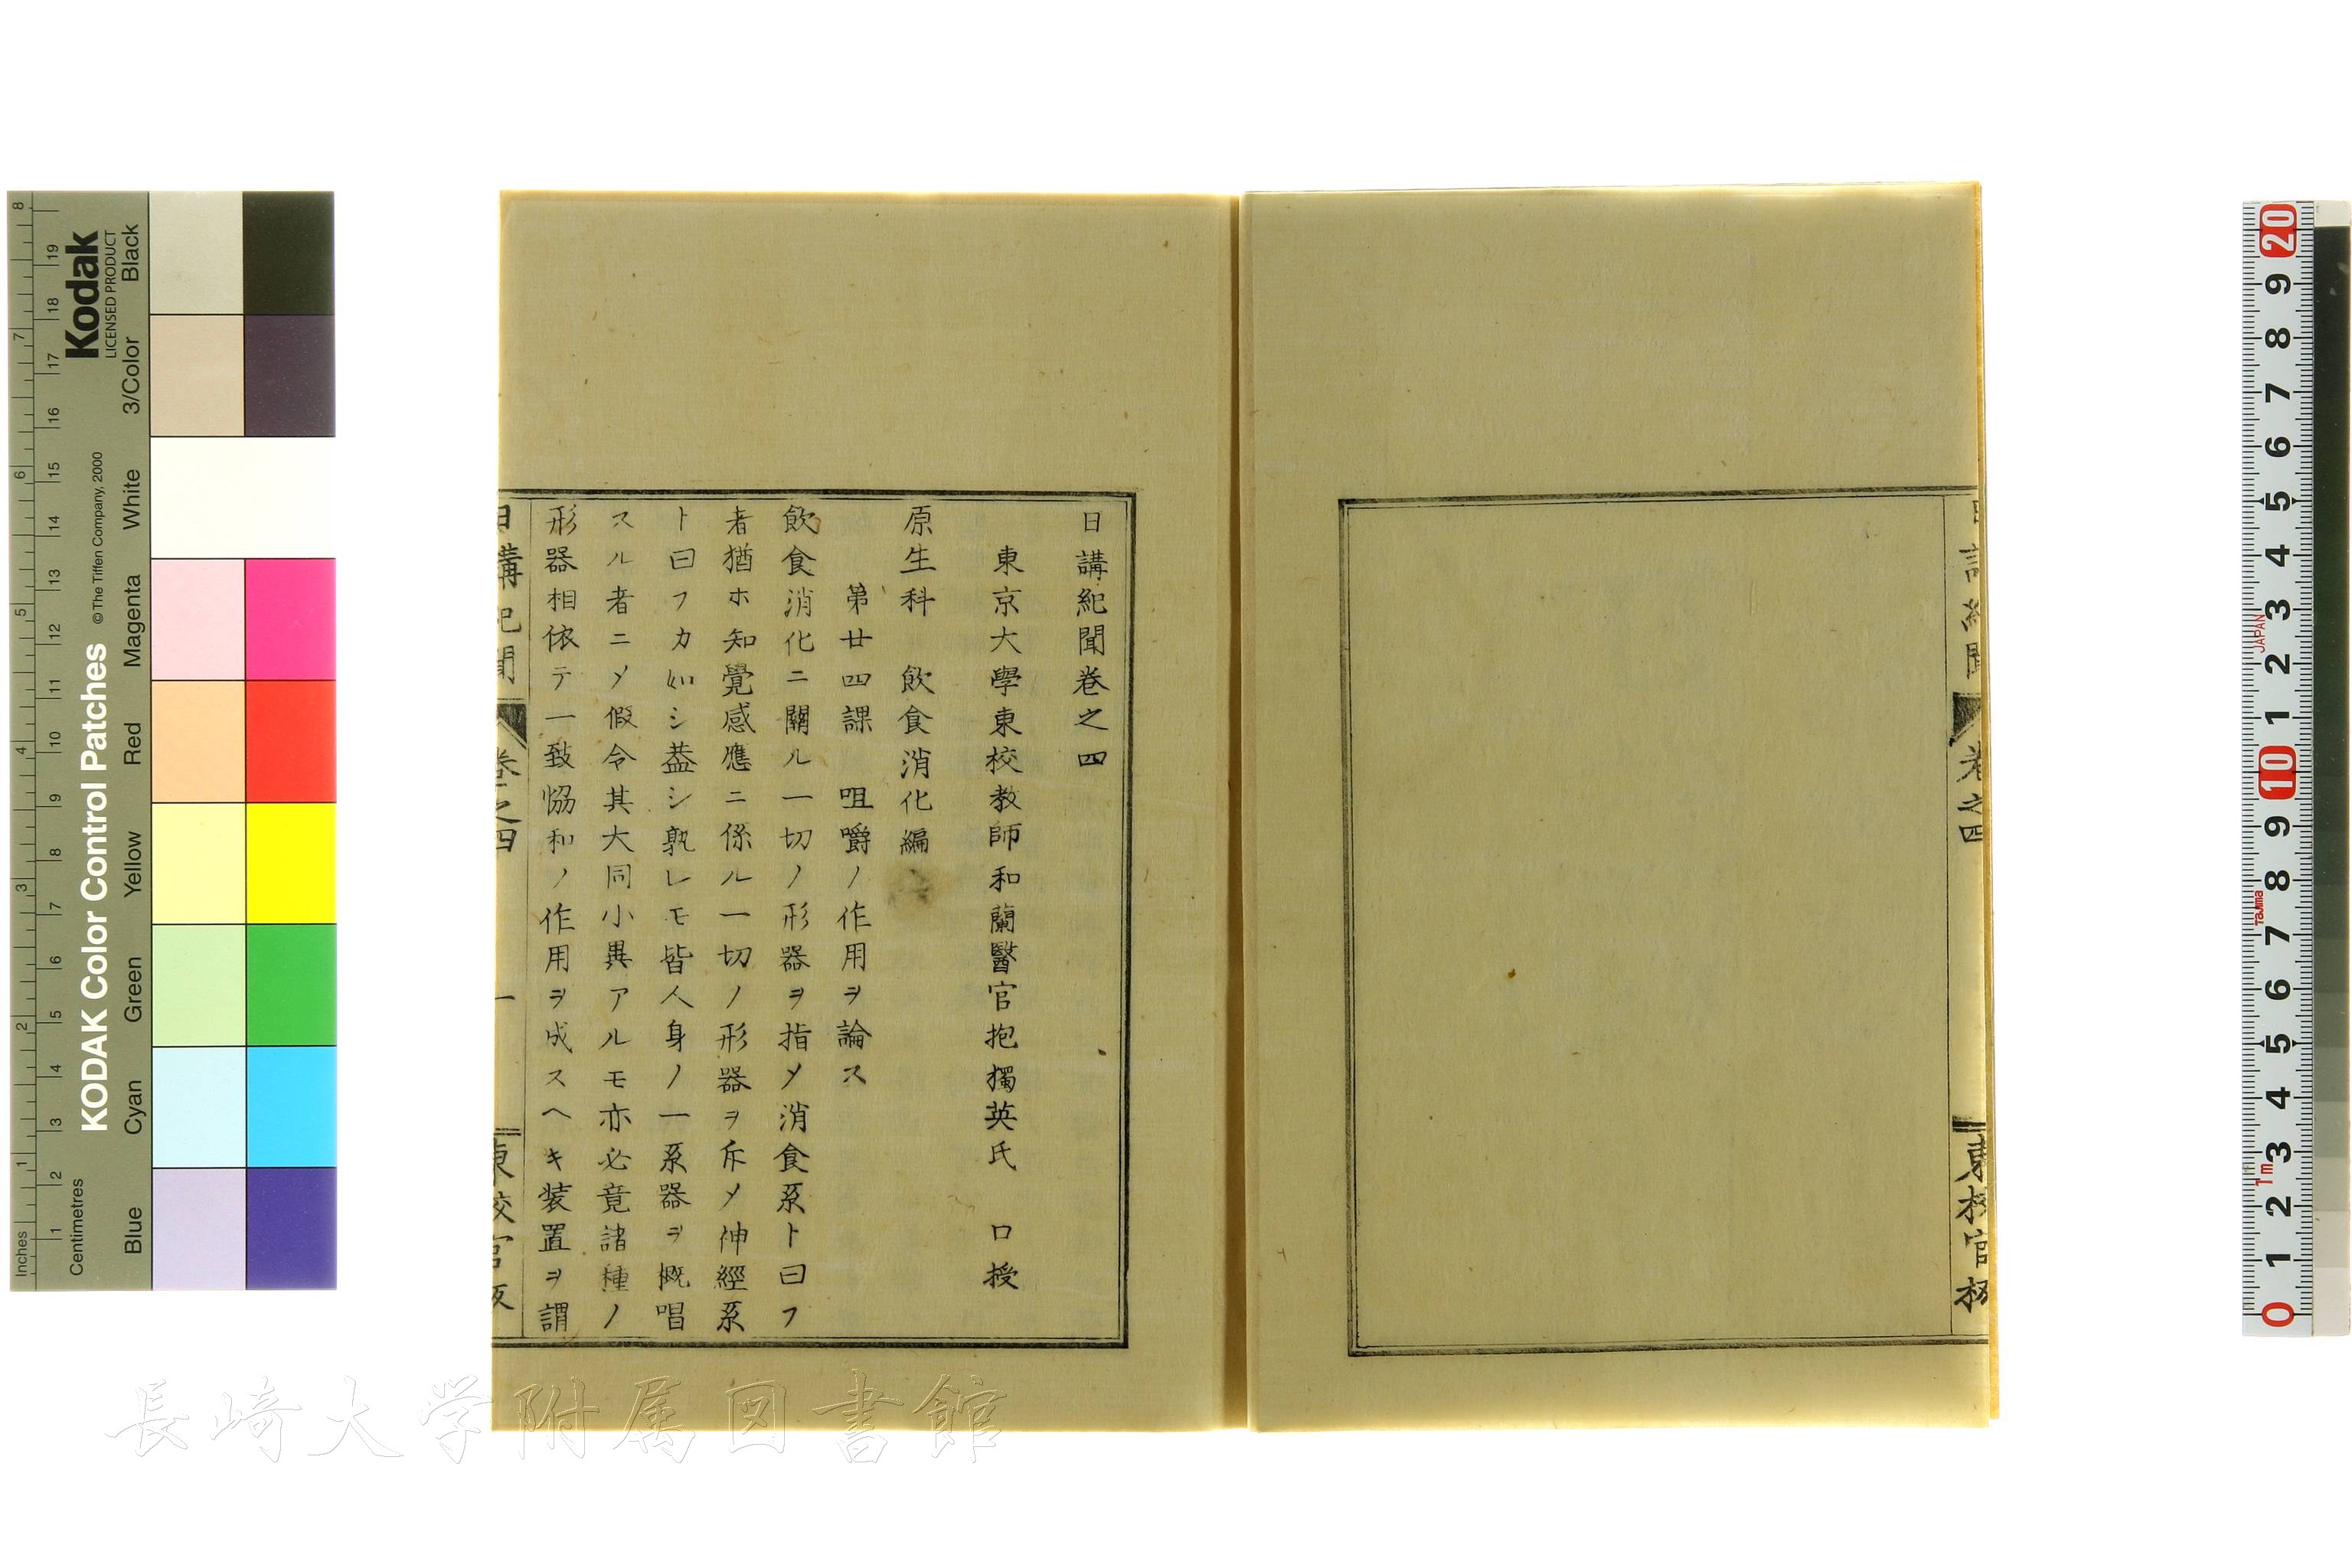 日講紀聞卷之四
東京大學東校教師和蘭醫官抱獨英氏 口授
原生科 飲食消化編
第廿四課 咀嚼ノ作用ヲ論ス
飲食消化ニ關ル一切ノ形器ヲ指〆消食系ト曰フ
者猶ホ知覺感應ニ係ル一切ノ形器ヲ斥〆神經系
ト曰フカ如シ蓋シ孰レモ皆人身ノ一系器ヲ概唱
スル者ニ〆假令其大同小異アルモ亦必竟諸種ノ
形器相依テ一致恊和ノ作用ヲ成スヘキ装置ヲ謂
日講紀聞 卷之四 一 東校官板
卷之四 東校官板
長崎大学附属図書館
KODAK Color Control Patches
© The Tiffen Company, 2000
Kodak
LICENSED PRODUCT
Inches
Centimetres
Blue Cyan Green Yellow Red Magenta White 3/Color Black
JAPAN
Tajima
1m